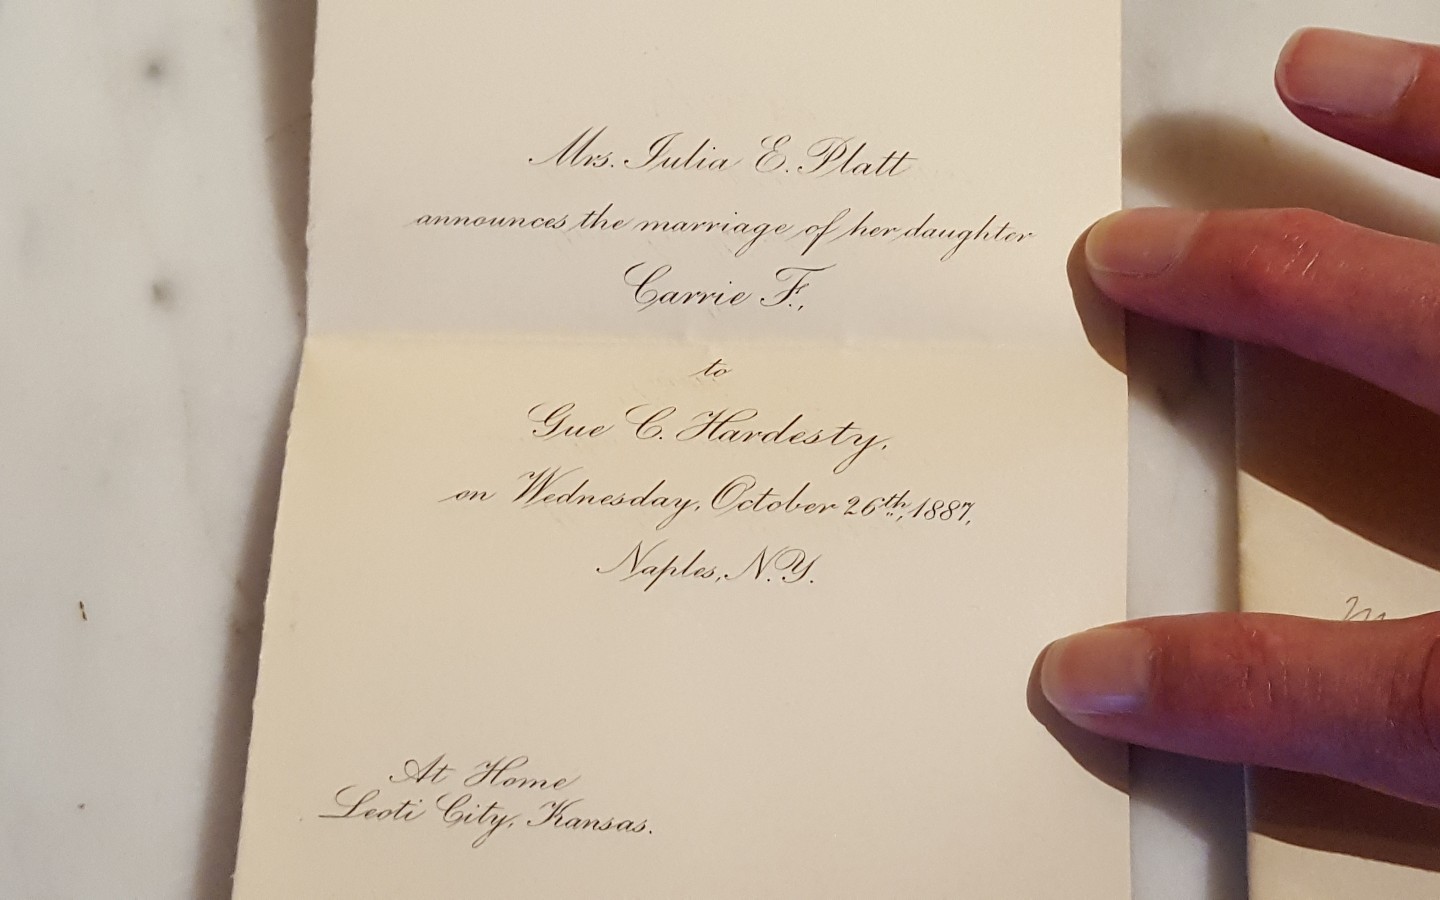 Mrs. Julia E. Platt
announces the marriage of her daughter
Carrie F.,
to
Gue C. Hardesty,
on Wednesday, October 26th, 1887,
Naples, N.Y.
At Home
Leoti City, Kansas.